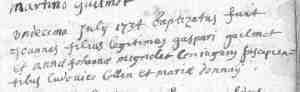 martino guilmot
undecima July 1734 Baptizatus fuit
Joannes filius legitimus gaspari guilmot
et annæ Johannæ mignolet coniugum suscipien
tibus Ludovico Collin et maria donnay.